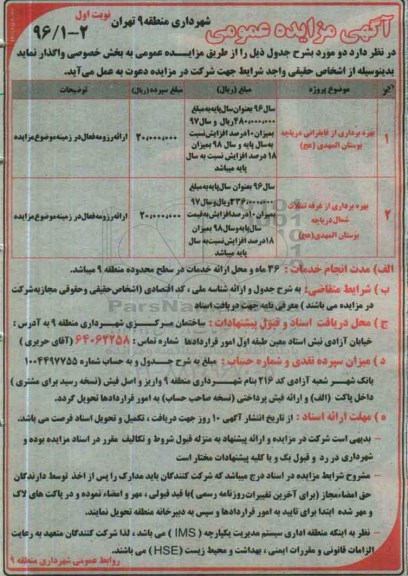 آگهی مزایده عمومی
شهرداری منطقه ۹ تهران
نوبت اول
۹۶/۱-۲
در نظر دارد دو مورد بشرح جدول ذیل را از طریق مزایده عمومی به بخش خصوصی واگذار نماید
بدینوسیله از اشخاص حقیقی واجد شرایط جهت شرکت در مزایده دعوت به عمل می‌آید.
موضوع پروژه
مبلغ (ریال)
مبلغ سپرده (ریال)
توضیحات
۱
بهره برداری از قایقرانی دریاچه
بوستان المهدی (عج)
سال ۹۶ بعنوان سال پایه به مبلغ
۴۸۰،۰۰۰،۰۰۰ ریال و سال ۹۷
بمیزان ۱۰ درصد افزایش نسبت
به سال پایه و سال ۹۸ بمیزان
۱۸ درصد افزایش نسبت به سال
پایه میباشد
۲۰،۰۰۰،۰۰۰
ارائه رزومه فعال در زمینه موضوع مزایده
۲
بهره برداری از غرفه تنقلات
شمال دریاچه
بوستان المهدی (عج)
سال ۹۶ بعنوان سال پایه به مبلغ
۳۳۶،۰۰۰،۰۰۰ ریال و سال ۹۷
بمیزان ۱۰ درصد افزایش به قیمت
سال پایه و سال ۹۸ بمیزان
۱۸ درصد افزایش نسبت به سال
پایه میباشد
۲۰،۰۰۰،۰۰۰
ارائه رزومه فعال در زمینه موضوع مزایده
الف) مدت انجام خدمات : ۳۶ ماه و محل ارائه خدمات در سطح محدوده منطقه ۹ میباشد.
ب) شرایط متقاضی: به شرح جدول و ارائه شناسه ملی ، کد اقتصادی (اشخاص حقیقی وحقوقی مجاز به شرکت
در مزایده می باشند ) معرفی نامه جهت دریافت اسناد
ج) محل دریافت اسناد و قبول پیشنهادات : ساختمان مرکزی شهرداری منطقه ۹ به آدرس :
خیابان آزادی نبش استاد معین طبقه اول امور قراردادها شماره تماس : ۶۴۰۶۲۲۵۸ (آقای حریری )
د) میزان سپرده نقدی و شماره حساب : مبلغ به شرح جدول و به حساب شماره ۱۰۰۴۴۹۷۷۵۵
بانک شهر شعبه آزادی کد ۲۱۶ بنام شهرداری منطقه ۹ واریز و اصل فیش (نسخه رسید برای مشتری )
داخل پاکت (الف) و ارائه فیش پرداختی (نسخه صاحب حساب) به امور قراردادها تحویل گردد.
ه) مهلت ارائه اسناد : از تاریخ انتشار آگهی ۱۰ روز جهت دریافت ، تکمیل و تحویل اسناد فرصت می باشد.
– بدیهی است شرکت در مزایده و ارائه پیشنهاد به منزله قبول شروط و تکالیف مقرر در اسناد مزایده بوده و
شهرداری در رد و قبول یک و یا کلیه پیشنهادات مختار است
– مشروح شرایط مزایده در اسناد درج میباشد که شرکت کنندگان باید مدارک را پس از اخذ توسط دارندگان
حق امضاء مجاز (برای آخرین تغییرات روزنامه رسمی )با قید قبولی ، مهر و امضاء نموده و در پاکت های لاک
و مهر شده ابتدا برای تایید به امور قراردادها و سپس به دبیرخانه منطقه تحویل نمایند.
– نظر به اینکه منطقه اداری سیستم مدیریت یکپارچه ( IMS ) می باشد ، لذا شرکت کنندگان متعهد به رعایت
الزامات قانونی و مقررات ایمنی ، بهداشت و محیط زیست (HSE) می باشند.
روابط عمومی شهرداری منطقه ۹